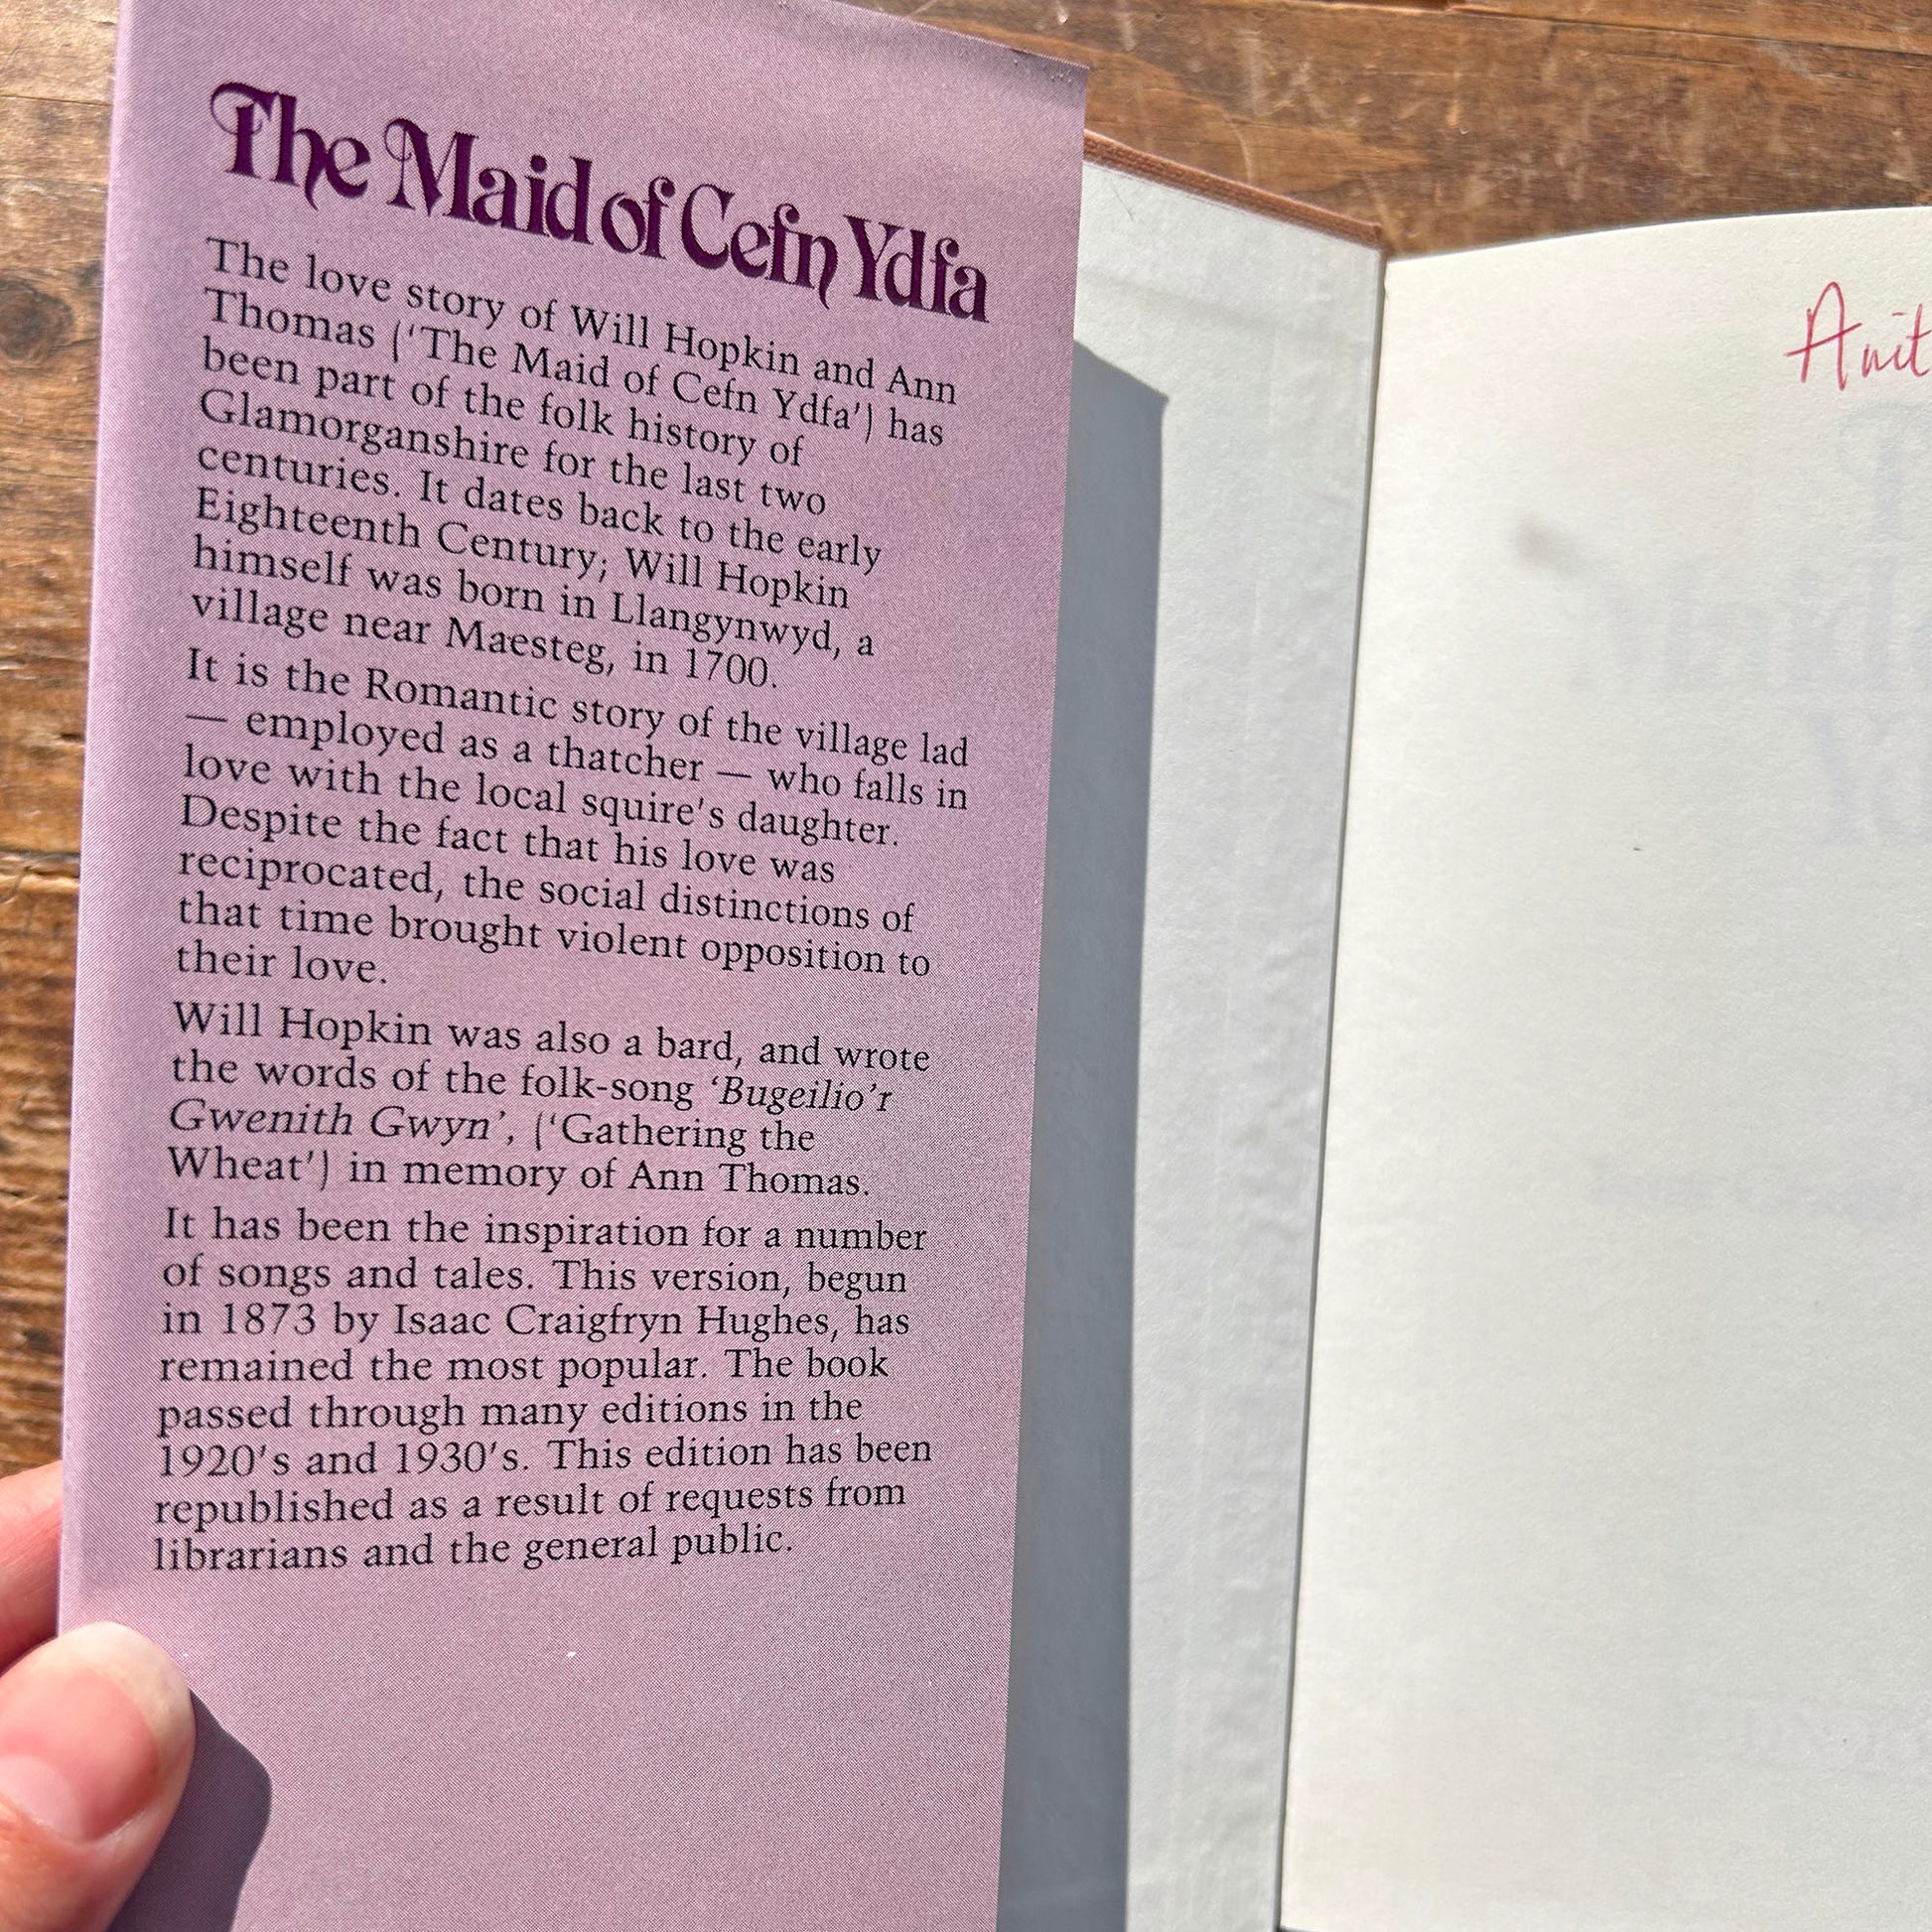 The Maid of Cefn Ydfa
The love story of Will Hopkin and Ann
Thomas (‘The Maid of Cefn Ydfa’) has
been part of the folk history of
Glamorganshire for the last two
centuries. It dates back to the early
Eighteenth Century; Will Hopkin
himself was born in Llangynwyd, a
village near Maesteg, in 1700.
It is the Romantic story of the village lad
— employed as a thatcher — who falls in
love with the local squire's daughter.
Despite the fact that his love was
reciprocated, the social distinctions of
that time brought violent opposition to
their love.
Will Hopkin was also a bard, and wrote
the words of the folk-song ‘Bugeilio’r
Gwenith Gwyn’, (‘Gathering the
Wheat’) in memory of Ann Thomas.
It has been the inspiration for a number
of songs and tales. This version, begun
in 1873 by Isaac Craigfryn Hughes, has
remained the most popular. The book
passed through many editions in the
1920's and 1930's. This edition has been
republished as a result of requests from
librarians and the general public.
Anit